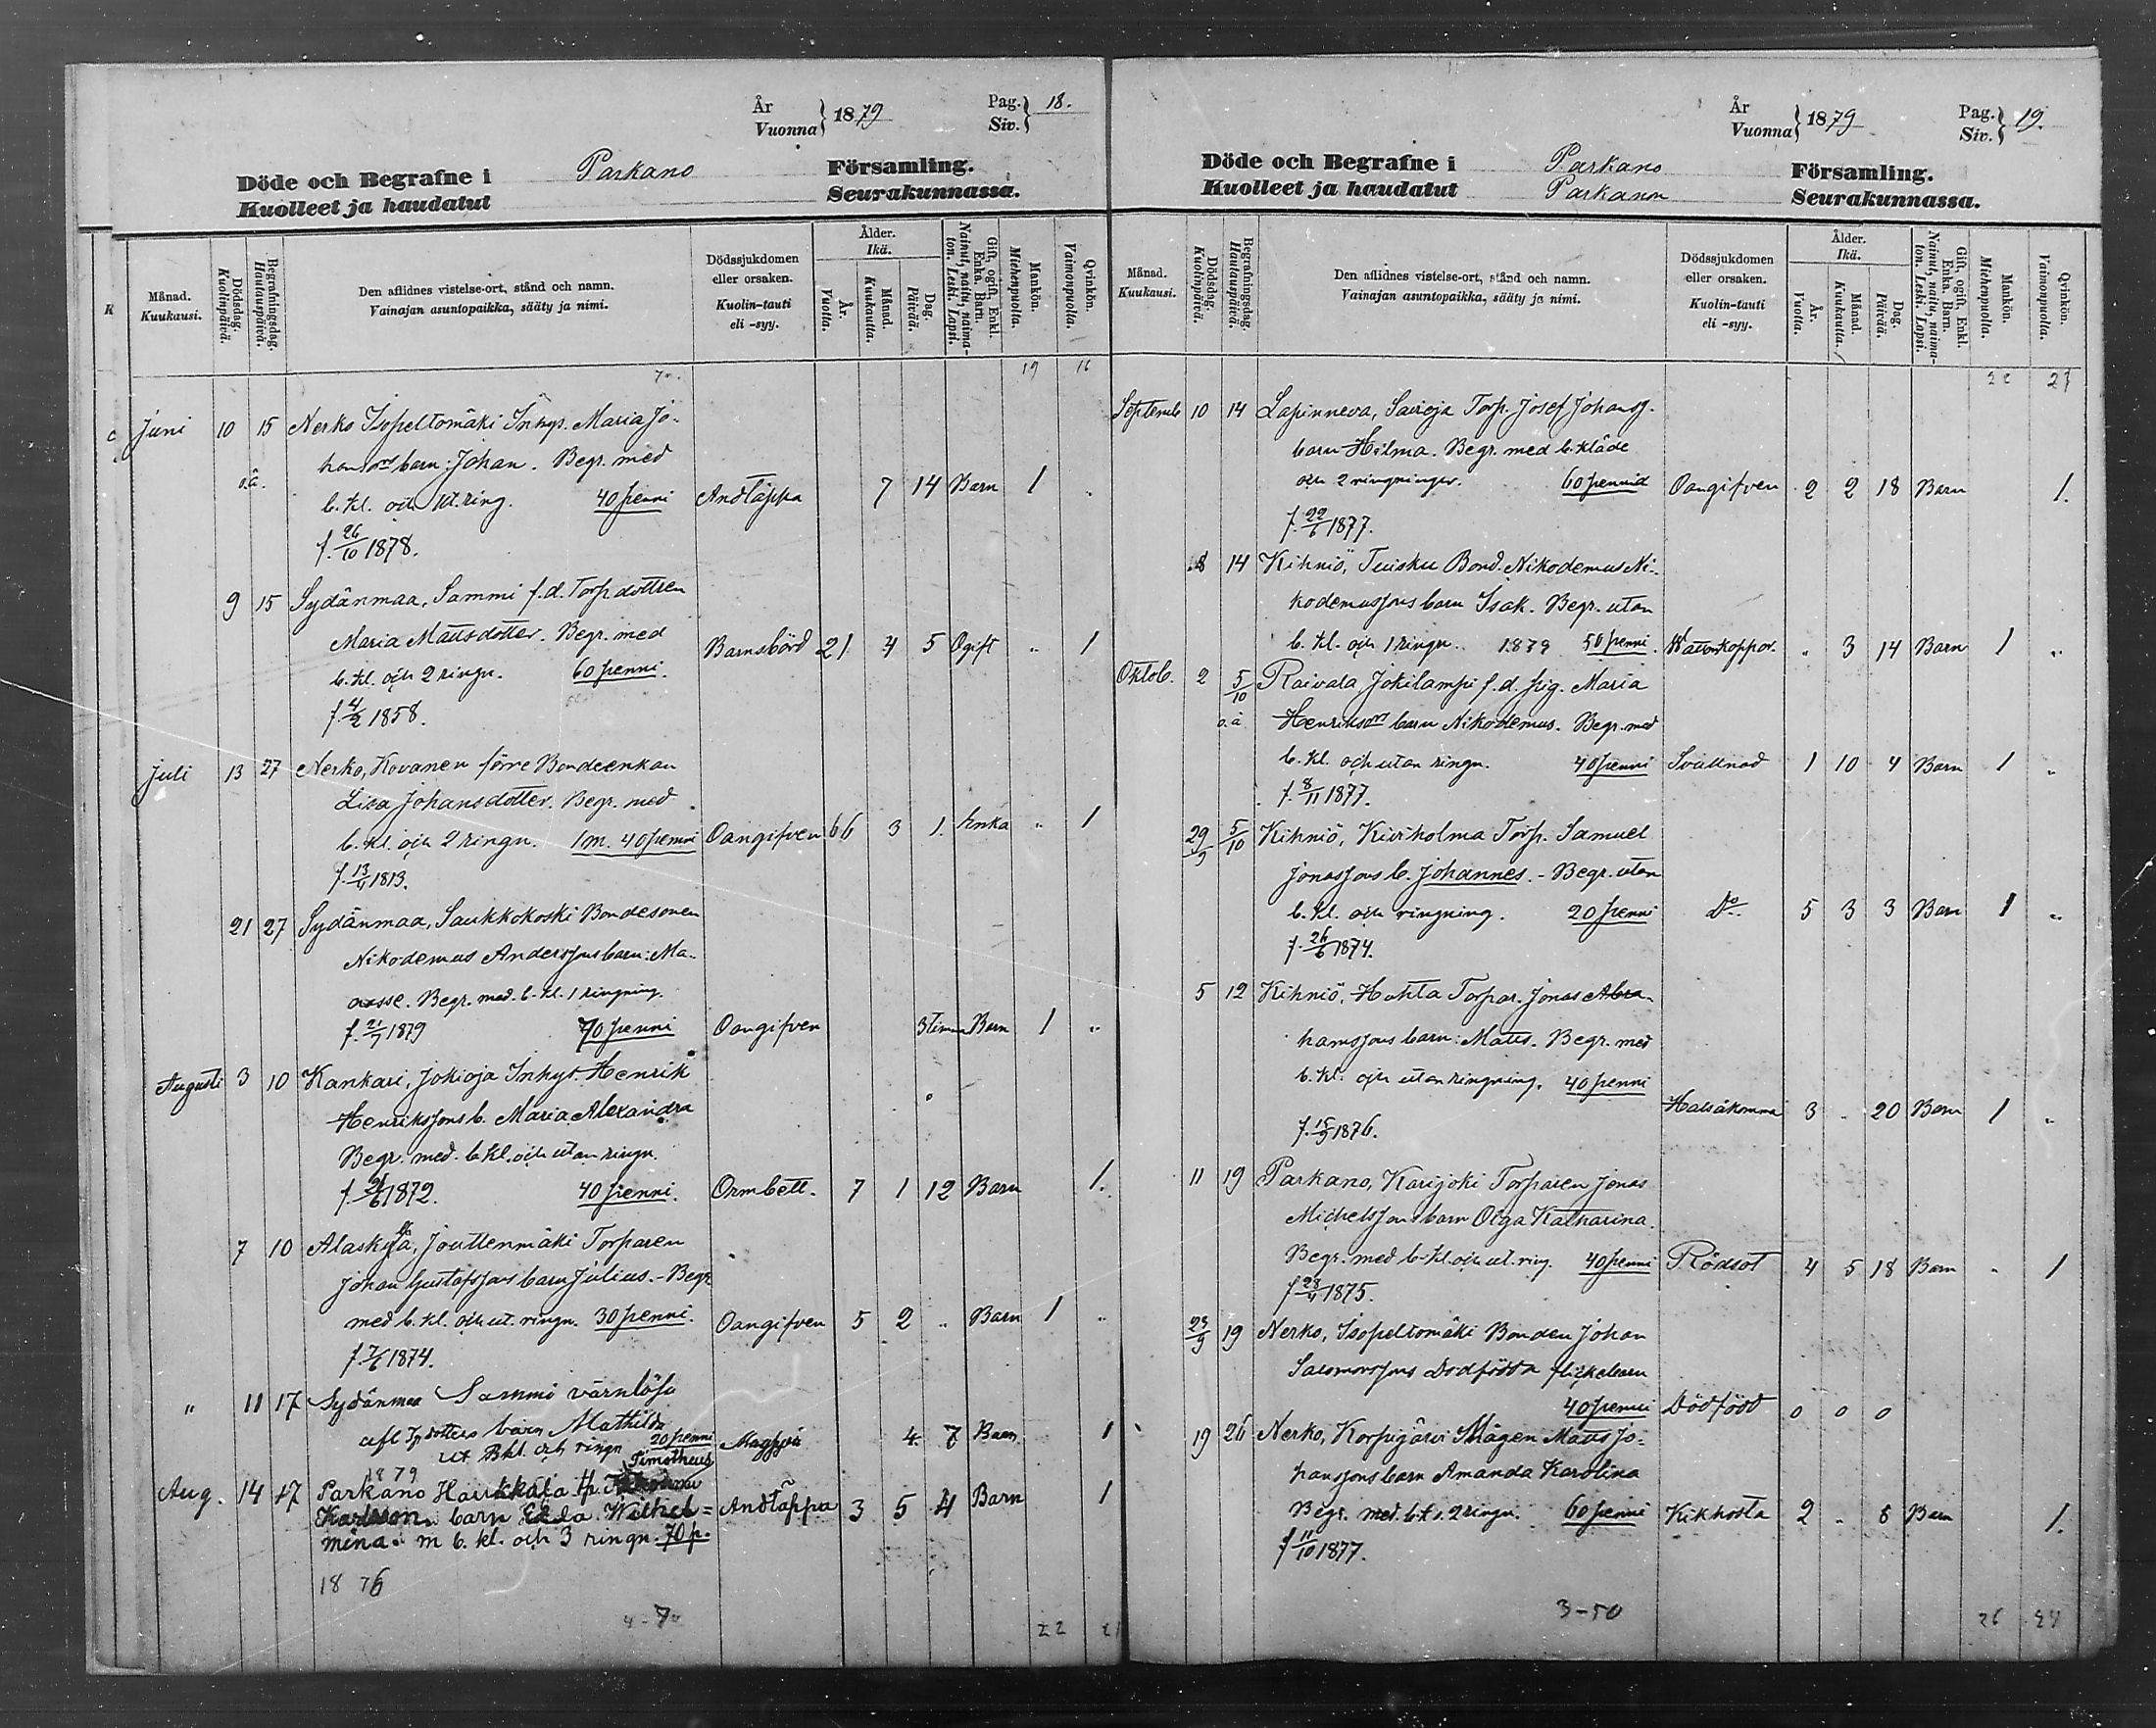 År Vuonna } 1879 Pag. Siv. } 18.
Döde och Begrafne i Parkano Församling.
Kuolleet ja haudatut Seurakunnassa.
Månad. Kuukausi. Dödsdag. Kuolinpäivä. Begrafningsdag. Hautauspäivä. Den aflidnes vistelse-ort, stånd och namn. Vainajan asuntopaikka, sääty ja nimi. Dödssjukdomen eller orsaken. Kuolin-tauti eli -syy. Ålder. Ikä. År. Vuotta. Månad. Kuukautta. Dag. Päivää. Gift, ogift, Enkl. Enka. Barn. Nainut, naitu, naimaton. Leski. Lapsi. Mankön. Miehenpuolta. Qvinkön. Vaimonpuolta.
19 16
Juni 10 15 Nerko Isopeltomäki Inhys. Maria Jo-
hansons barn: Johan. Begr. med
o.ä. b. kl. och ut. ring. 40 penni Andtäppa 7 14 Barn 1
f. 26/10 1878.
9 15 Sydänmaa, Sammi f.d. Torp.dottren
Maria Mattsdotter. Begr. med
b. kl. och 2 ringn. 60 penni. Barnsbörd 21 4 5 Ogift " 1
f. 4/2 1858.
Juli 13 27 Nerko, Kovanen förre Bondeenkan
Lisa Johansdotter. Begr. med
b. kl. och 2 ringn. 1 m. 40 penni Oangifven 66 3 1. Enka " 1
f. 13/4 1813.
21 27 Sydänmaa, Saukkokoski Bondesonen
Nikodemus Anderssons barn: Ma-
nasse. Begr. med. b. kl. 1 ringning.
f. 21/7 1879 70 penni Oangifven 3 timm Barn 1 "
Augusti 3 10 Kankari, Jokioja Inhys. Henrik
Henrikssons b. Maria Alexandra
Begr. med. b. kl. och utan ringn.
1872. 40 penni. Ormbett. 7 1 12 Barn 1.
7 10 Alaskylä, Jouttenmäki Torparen
Johan Gustafssons barn Julius. - Begr
med b. kl. och ut. ringn. 30 penni. Oangifven 5 2 " Barn 1 "
f 7/6 1874.
" 11 17 Sydänmaa Sammi värnlösa
afl Tp dotters barn Mathilda
ut Bkl. och ringn 20 penni 4. 7 Barn 1
1879 Timotheus
Aug. 14 17 Parkano Haukkala tp.
Karlsson barn Edla Wilhel=
mina. m b. kl. och 3 ringn. 70 p. Andtäppa 3 5 4 Barn 1
1876
22
År Vuonna } 1879 Pag. Siv. } 19.
Döde och Begrafne i Parkano Församling.
Kuolleet ja haudatut Parkanon Seurakunnassa.
Månad. Kuukausi. Dödsdag. Kuolinpäivä. Begrafningsdag. Hautauspäivä. Den aflidnes vistelse-ort, stånd och namn. Vainajan asuntopaikka, sääty ja nimi. Dödssjukdomen eller orsaken. Kuolin-tauti eli -syy. Ålder. Ikä. År. Vuotta. Månad. Kuukautta. Dag. Päivää. Gift, ogift, Enkl. Enka. Barn. Nainut, naitu, naimaton. Leski. Lapsi. Mankön. Miehenpuolta. Qvinkön. Vaimonpuolta.
22 21
Septemb 10 14 Lapinneva, Savioja Torp. Josef Johanss.
barn Hilma. Begr. med b. kläde
och 2 ringningar. 60 pennid Oangifven 2 2 18 Barn 1.
f. 22/6 1877.
8 14 Kihniö, Tuisku Bond. Nikodemus Ni-
kodemussons barn Isak. Begr. utan
b. kl. och 1 ringn. 1879 50 penni. Wattenkoppor. " 3 14 Barn 1 "
Oktob. 2 5/10 Raivala Jokilampi f.d. pig. Maria
o.ä Henriksons barn Nikodemus. Begr. med
b. kl. och utan ringn. 40 penni Svullnad 1 10 4 Barn 1 "
f. 8/11 1877.
29/9 5/10 Kihniö, Kiviholma Torp. Samuel
Jonassons b. Johannes. - Begr. utan
b. kl. och ringning. 20 penni Do 5 3 3 Barn 1 "
f. 26/6 1874.
5 12 Kihniö, Huhta Torpar. Jonas Abra-
hamssons barn: Matts. Begr. med
b. kl. och utan ringning. 40 penni
Halsåkomma 3 " 20 Barn 1 "
f. 15/9 1876.
11 19 Parkano, Karijoki Torparen Jonas
Michelssons barn Olga Katharina.
Begr. med b. kl. och ut. ring. 40 penni Rödsot 4 5 18 Barn " 1
f 23/4 1875.
29/9 19 Nerko, Isopeltomäki Bonden Johan
Salomonssons Dödfödda flickebarn
40 penni Dödfödd 0 0 0
19 26 Nerko, Korpijärvi Mågen Matts Jo-
hanssons barn Amanda Karolina
Begr. med. b. k. o. 2 ringn. 60 penni Kikhosta 2 " 8 Barn 1.
f 11/10 1877.
3-50
26 24